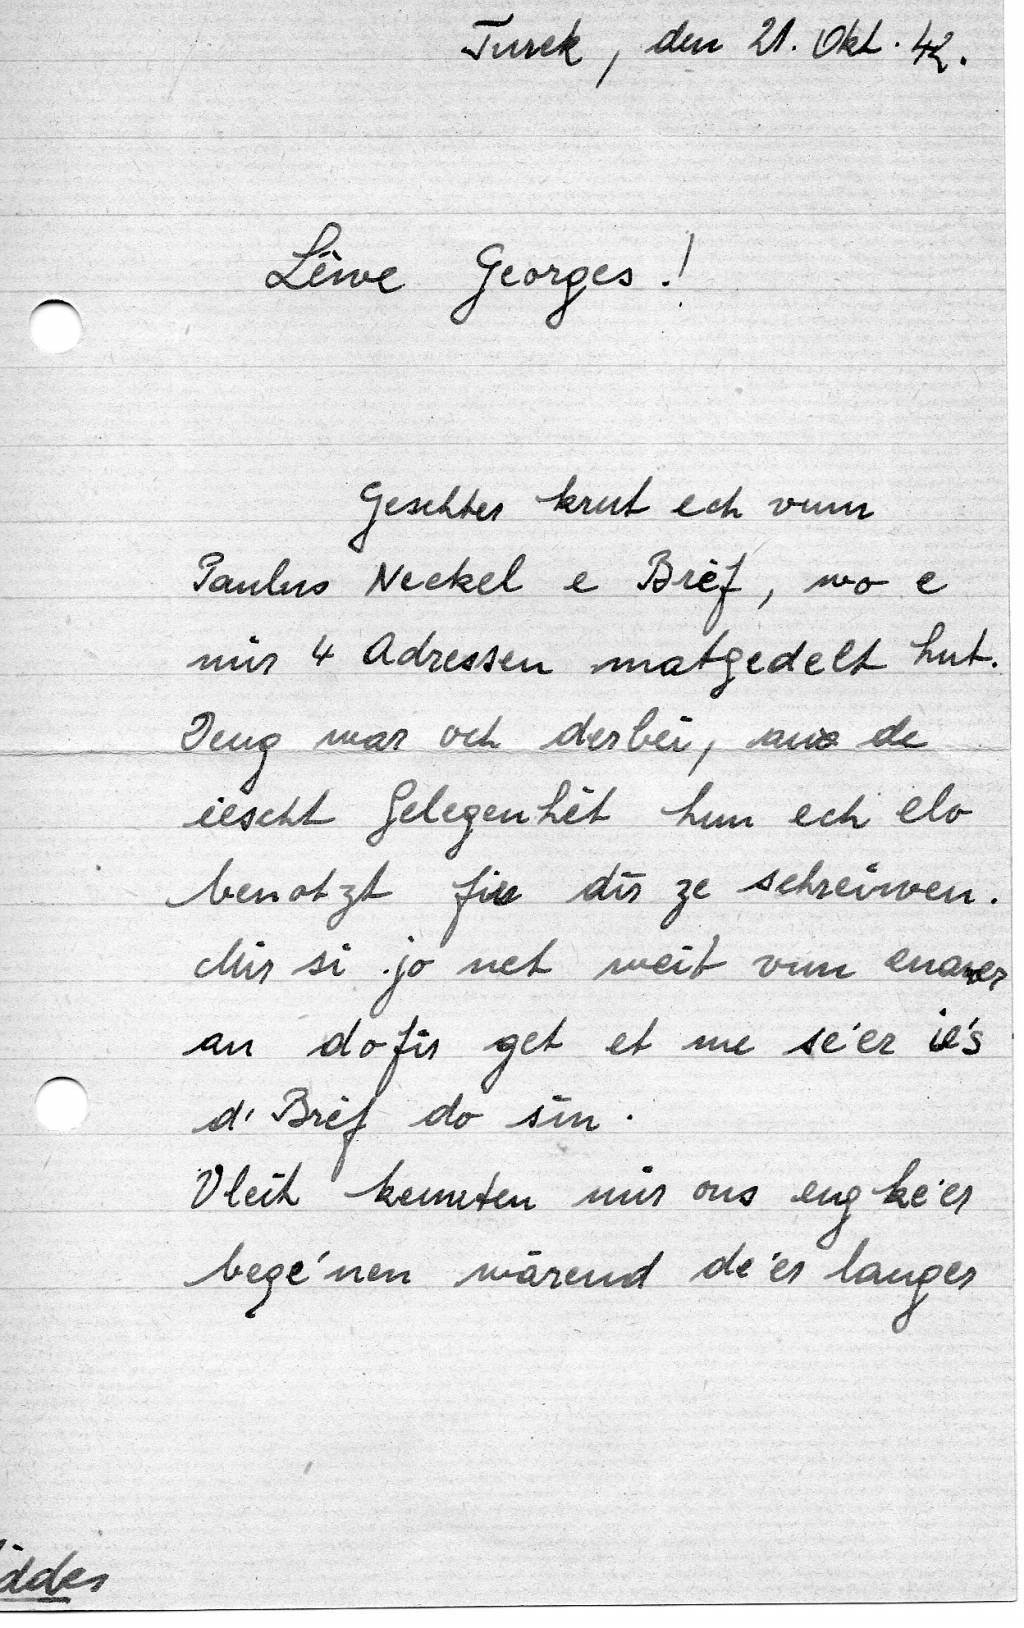 Turek, den 21. Okt. 42.
Lèwe Georges!
Geschter krut ech vum
Paulus Neckel e Brèf, wo e
mir 4 Adressen matgedelt hut.
Deng war och derbei, aus de
iescht Gelegenhét hun ech elo
benotzt fir dir ze schreiwen.
Mir si jo net weit vun enaner
an dofir get et me sé'er ié's
d'Brèf do sin.
Vleit kennten mir ons eng ké'er
begé'nen wärend dé'er langer